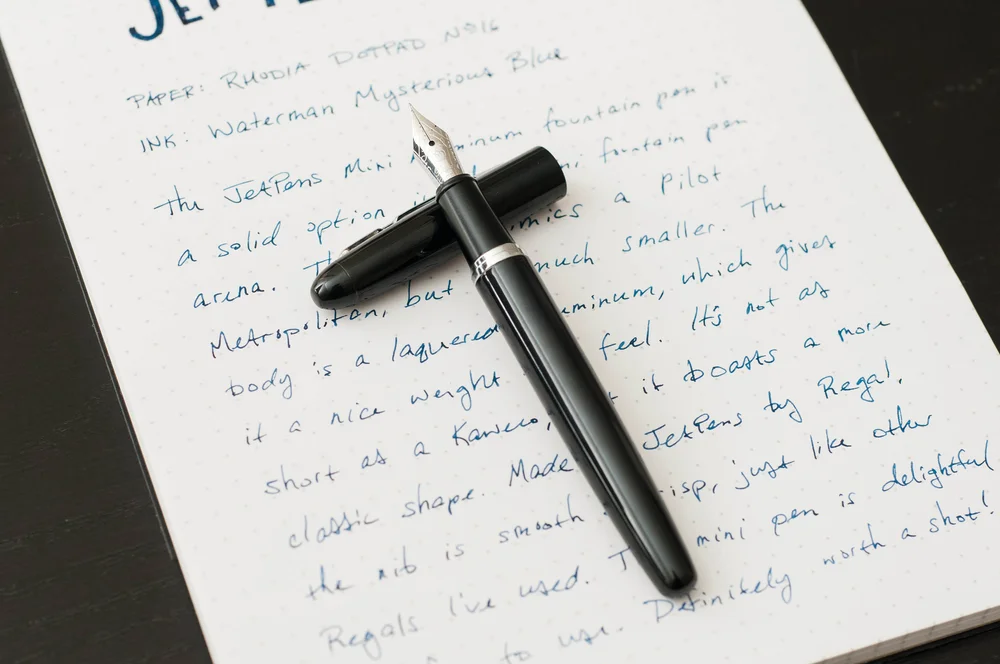 JETPE
PAPER: RHODIA DOTPAD Nº16
INK: Waterman Mysterious Blue
The JetPens Mini minum fountain pen is
a solid option fountain pen
arena. mics a Pilot
Metropolitan, but much smaller. The
body is a laquered uminum, which gives
it a nice weight feel. It's not as
short as a Kaweco, it boasts a more
classic shape. Made JetPens by Regal,
the nib is smooth isp, just like other
Regals I've used. T mini pen is delightful
to use. Definitely worth a shot!